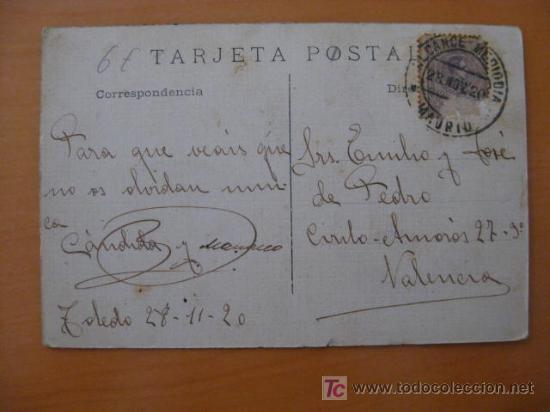 6€
TARJETA POSTAL
Correspondencia
Di
ALCANCE MEDIODIA
28 NOV 20
MADRID
Para que veais que
no os olvidan nun-
ca
Cándida y
Toledo 28-11-20
Srs. Emilio y José
de Pedro
Cirilo-Amorós 27-3º
Valencia
todocoleccion.net